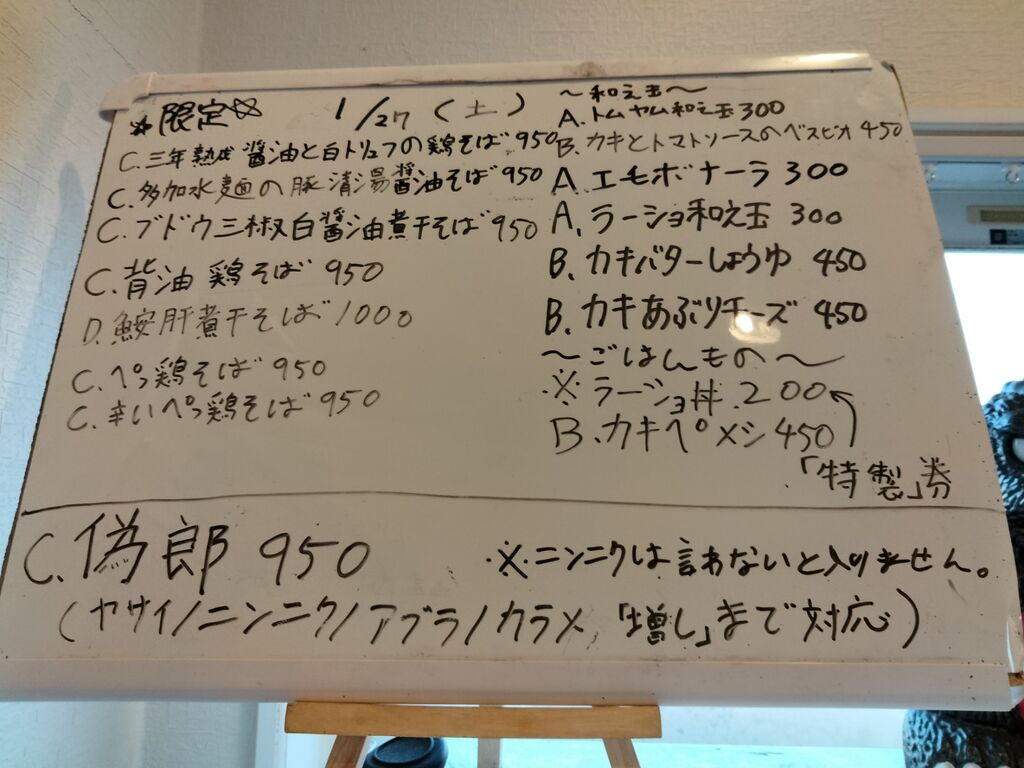 ☆限定☆ 1/27(土)
C.三年熟成醤油と白トリュフの鶏そば 950
C.多加水麺の豚清湯醤油そば 950
C.ブドウ三椒白醤油煮干そば 950
C.背油鶏そば 950
D.鮟肝煮干そば 1000
C.ペっ鶏そば 950
C.辛いペっ鶏そば 950
〜和え玉〜
A.トムヤム和え玉 300
B.カキとトマトソースのベスビオ 450
A.エモボナーラ 300
A.ラーショ和え玉 300
B.カキバターしょうゆ 450
B.カキあぶりチーズ 450
〜ごはんもの〜
※ラーショ丼.200
B.カキペメシ 450
「特製」券
C.偽郎 950
※ニンニクは言わないと入りません。
(ヤサイ/ニンニク/アブラ/カラメ「増し」まで対応)